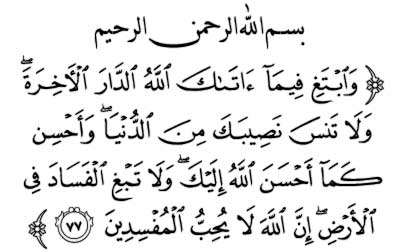 بسم الله الرحمن الرحيم
﴿ وَٱبْتَغِ فِيمَآ ءَاتَىٰكَ ٱللَّهُ ٱلدَّارَ ٱلْءَاخِرَةَ ۖ
وَلَا تَنسَ نَصِيبَكَ مِنَ ٱلدُّنْيَا ۖ وَأَحْسِن
كَمَآ أَحْسَنَ ٱللَّهُ إِلَيْكَ ۖ وَلَا تَبْغِ ٱلْفَسَادَ فِى
ٱلْأَرْضِ ۖ إِنَّ ٱللَّهَ لَا يُحِبُّ ٱلْمُفْسِدِينَ ٧٧ ﴾